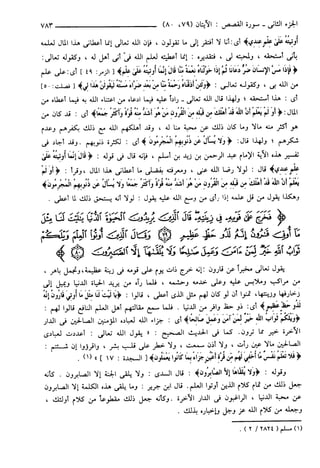 الجزء الثاني - سورة القصص : الآيتان (٧٩، ٨٠) ٧٨٣
أُوتِيتُهُ عَلَى عِلْمٍ عِندِي﴾ أي : أنا لا أفتقر إلى ما تقولون ، فإن الله تعالى إنما أعطاني هذا المال لعلمه
بأني أستحقه ، ولمحبته لي ، فتقديره : إنما أعطيته لعلم الله فيَّ أني أهل له ، وكقوله تعالى :
﴿فَإِذَا مَسَّ الْإِنسَانَ ضُرٌّ دَعَانَا ثُمَّ إِذَا خَوَّلْنَاهُ نِعْمَةً مِّنَّا قَالَ إِنَّمَا أُوتِيتُهُ عَلَى عِلْمٍ﴾ [الزمر: ٤٩] أي : على علم
من الله بي ، وكقوله تعالى : ﴿وَلَئِنْ أَذَقْنَاهُ رَحْمَةً مِّنَّا مِن بَعْدِ ضَرَّاءَ مَسَّتْهُ لَيَقُولَنَّ هَذَا لِي﴾ [فصلت: ٥٠]
أي : هذا أستحقه ؛ ولهذا قال الله تعالى ـ راداً عليه فيما ادعاه من اعتناء الله به فيما أعطاه من
المال : ﴿أَوَلَمْ يَعْلَمْ أَنَّ اللَّهَ قَدْ أَهْلَكَ مِن قَبْلِهِ مِنَ الْقُرُونِ مَنْ هُوَ أَشَدُّ مِنْهُ قُوَّةً وَأَكْثَرُ جَمْعًا﴾ أي : قد كان من
هو أكثر منه مالا وما كان ذلك عن محبة منا له ، وقد أهلكهم الله مع ذلك بكفرهم وعدم
شكرهم ؛ ولهذا قال : ﴿وَلَا يُسْأَلُ عَن ذُنُوبِهِمُ الْمُجْرِمُونَ﴾ أي : لكثرة ذنوبهم . وقد أجاد في
تفسير هذه الآية الإمام عبد الرحمن بن زيد بن أسلم ، فإنه قال في قوله : ﴿قَالَ إِنَّمَا أُوتِيتُهُ عَلَى
عِلْمٍ عِندِي﴾ قال : لولا رضا الله عني ، ومعرفته بفضلي ما أعطاني هذا المال ، وقرأ : ﴿أَوَلَمْ
يَعْلَمْ أَنَّ اللَّهَ قَدْ أَهْلَكَ مِن قَبْلِهِ مِنَ الْقُرُونِ مَنْ هُوَ أَشَدُّ مِنْهُ قُوَّةً وَأَكْثَرُ جَمْعًا وَلَا يُسْأَلُ عَن ذُنُوبِهِمُ الْمُجْرِمُونَ﴾
وهكذا يقول من قل علمه إذا رأى من وسع الله عليه يقول : لولا أنه يستحق ذلك لما أعطي .
﴿فَخَرَجَ عَلَى قَوْمِهِ فِي زِينَتِهِ قَالَ الَّذِينَ يُرِيدُونَ الْحَيَاةَ الدُّنْيَا يَا لَيْتَ لَنَا مِثْلَ مَا أُوتِيَ قَارُونُ إِنَّهُ
لَذُو حَظٍّ عَظِيمٍ وَقَالَ الَّذِينَ أُوتُوا الْعِلْمَ وَيْلَكُمْ
ثَوَابُ اللَّهِ خَيْرٌ لِّمَنْ آمَنَ وَعَمِلَ صَالِحًا وَلَا يُلَقَّاهَا إِلَّا الصَّابِرُونَ﴾
يقول تعالى مخبراً عن قارون : إنه خرج ذات يوم على قومه في زينة عظيمة ، وتجمل باهر ،
من مراكب وملابس عليه وعلى خدمه وحشمه ، فلما رآه من يريد الحياة الدنيا ويميل إلى
زخارفها وزينتها ، تمنوا أن لو كان لهم مثل الذي أعطي ، قالوا : ﴿يَا لَيْتَ لَنَا مِثْلَ مَا أُوتِيَ قَارُونُ إِنَّهُ
لَذُو حَظٍّ عَظِيمٍ﴾ أي : ذو حظ وافر من الدنيا . فلما سمع مقالتهم أهل العلم النافع قالوا لهم :
﴿وَيْلَكُمْ ثَوَابُ اللَّهِ خَيْرٌ لِّمَنْ آمَنَ وَعَمِلَ صَالِحًا﴾ أي : جزاء الله لعباده المؤمنين الصالحين في الدار
الآخرة خير مما ترون. كما في الحديث الصحيح : « يقول الله تعالى : أعددت لعبادي
الصالحين مالا عين رأت ، ولا أذن سمعت ، ولا خطر على قلب بشر ، واقرؤوا إن شئتم :
﴿فَلَا تَعْلَمُ نَفْسٌ مَّا أُخْفِيَ لَهُم مِّن قُرَّةِ أَعْيُنٍ جَزَاءً بِمَا كَانُوا يَعْمَلُونَ﴾ [السجدة : ١٧] » (١) .
وقوله : ﴿وَلَا يُلَقَّاهَا إِلَّا الصَّابِرُونَ﴾ : قال السدي : ولا يلقى الجنة إلا الصابرون . كأنه
جعل ذلك من تمام كلام الذين أوتوا العلم. قال ابن جرير : وما يلقى هذه الكلمة إلا الصابرون
عن محبة الدنيا ، الراغبون في الدار الآخرة . وكأنه جعل ذلك مقطوعاً من كلام أولئك ،
وجعله من كلام الله عز وجل وإخباره بذلك .
(١) مسلم ( ٢٨٢٤ / ٢ ) .